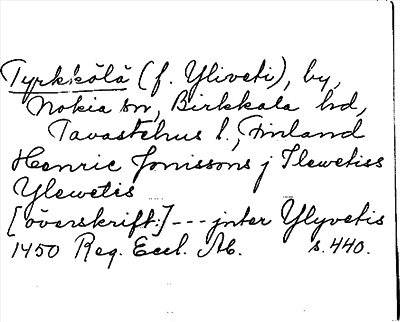 Tyrkkölä (f. Yliveti), by,
Nokia sn, Birkkala hd,
Tavastehus l., Finland
Henric Jönissons j Ilewetiss
Ylewetis
[överskrift:] --- jnter Ylyvetis
1450 Reg. Eccl. Ab. s. 440.